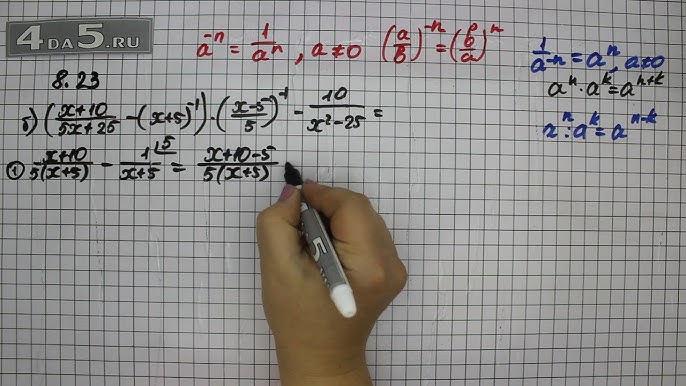 4DA5.RU
a⁻ⁿ = 1/aⁿ, a≠0 (a/b)⁻ⁿ = (b/a)ⁿ
1/a⁻ⁿ = aⁿ, a≠0
aⁿ · aᵏ = aⁿ⁺ᵏ
aⁿ : aᵏ = aⁿ⁻ᵏ
8.23
б) ((x+10)/(5x+25) − (x+5)⁻¹) · ((x−5)/5)⁻¹ − 10/(x²−25) =
① (x+10)/(5(x+5)) − 1⌋5/(x+5) = (x+10−5)/(5(x+5))